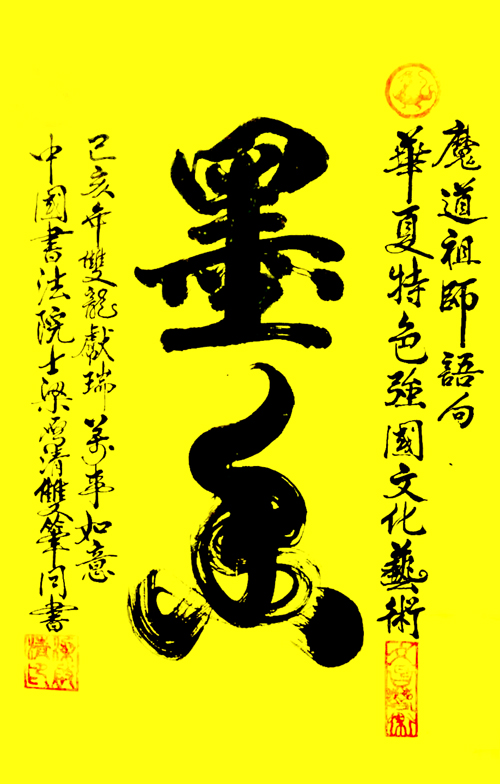 魔道祖師語句
華夏特色強國文化藝術
墨香
己亥年雙龍獻瑞萬事如意
中國書法院士梁清雙筆同書